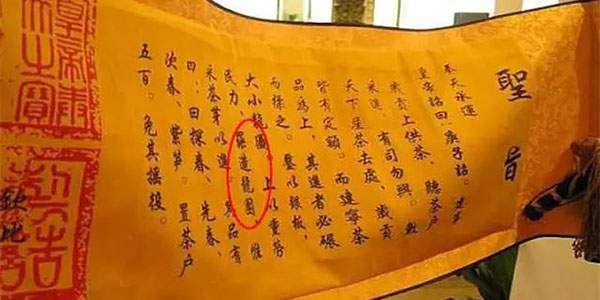 聖旨
奉天承運
皇帝詔曰:庚子詔。建寧
歲貢上供茶、聽茶戶
采進、有司勿與。敕
天下產茶去處、歲貢
皆有定額。而建寧茶
品爲上、其進者必碾
而揉之。壓以銀板、
大小龍團。上以重勞
民力、罷造龍團、惟
采茶芽以進、其品有
四:曰探春、先春、
次春、紫筍。置茶戶
五百。免其徭役。
欽此